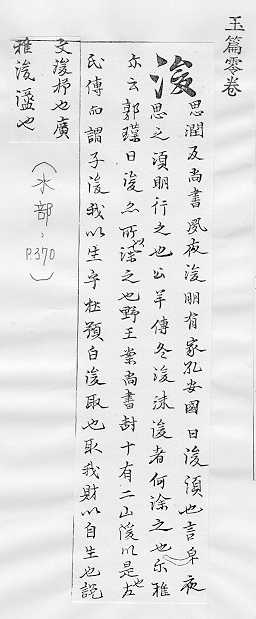 玉篇零卷
浚 思潤反尚書夙夜浚明有家孔安國曰浚須也言早夜
思之須明行之也公羊傳冬浚洙浚者何深之也尒雅
亦云郭璞曰浚忽所深之也野王案尚書封十有二山浚川是也左
氏傳曰謂子浚我以生乎杜預白浚取也取我財以自生也說
文浚杼也廣
雅浚溋也
（水部：P.370）